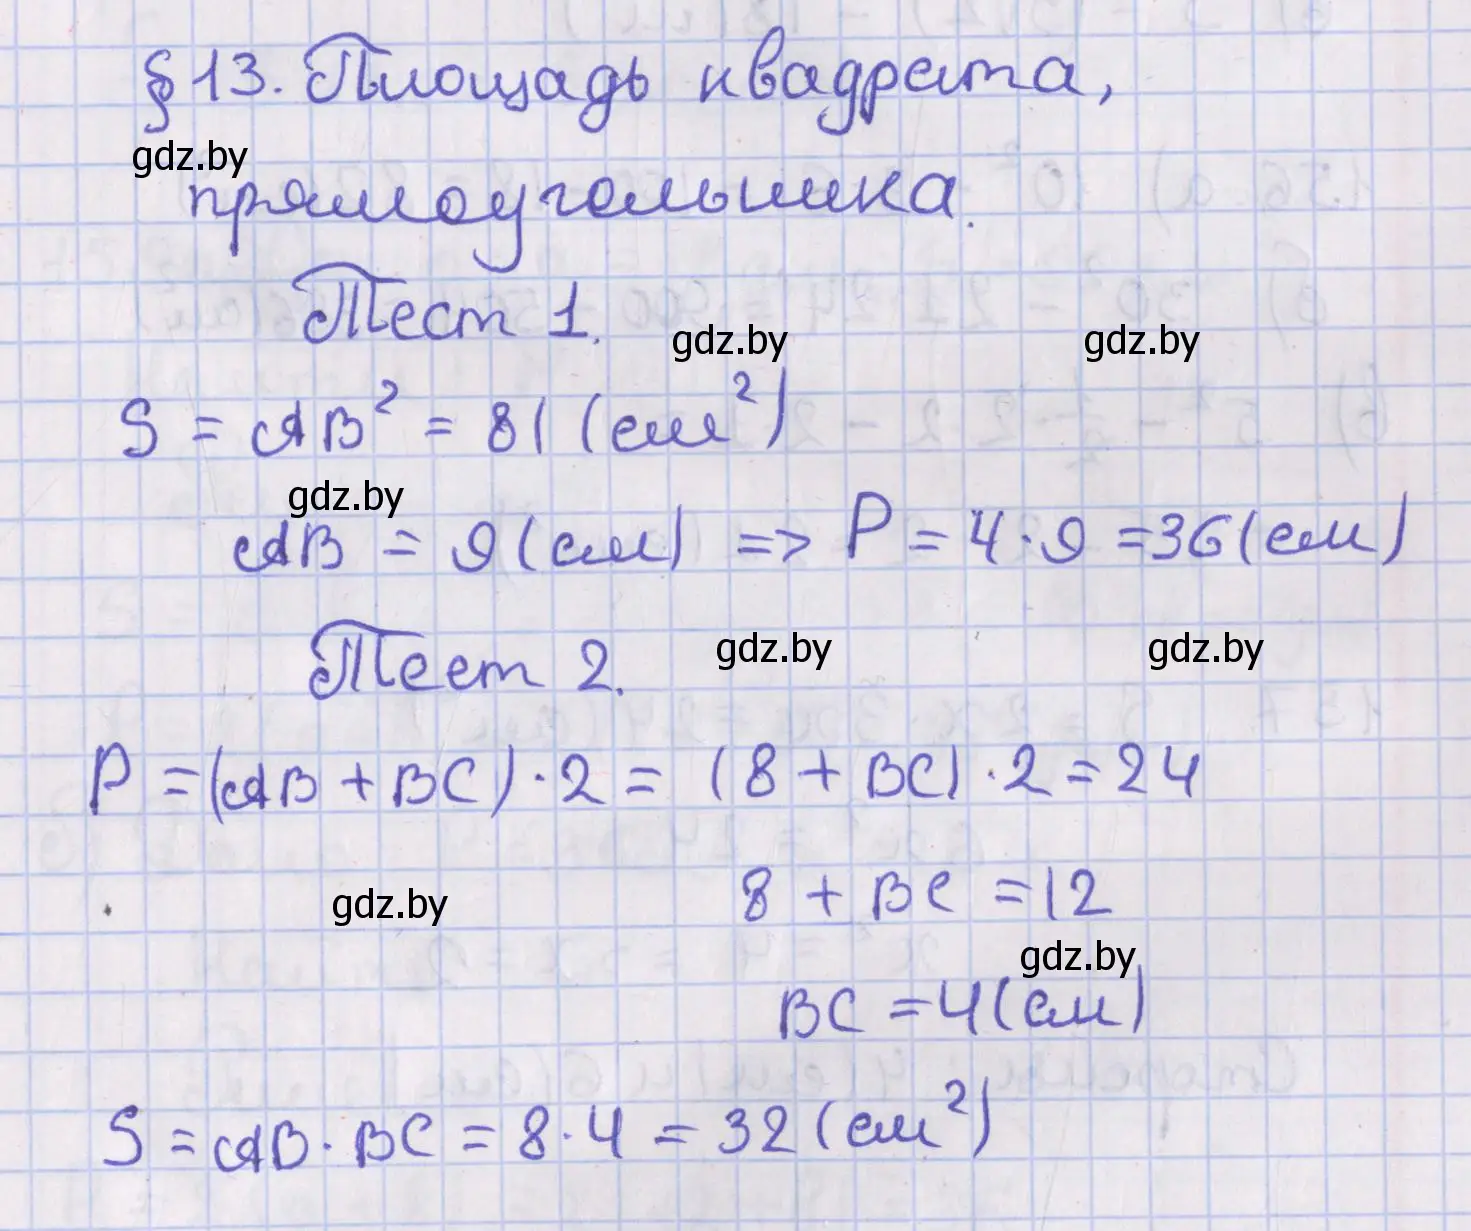 § 13. Площадь квадрата,
gdz.by
прямоугольника.
Тест 1.
gdz.by gdz.by
S = AB² = 81 (см²)
gdz.by
AB = 9 (см) => P = 4 · 9 = 36 (см)
Тест 2.
gdz.by gdz.by
P = (AB + BC) · 2 = (8 + BC) · 2 = 24
8 + BC = 12
gdz.by
gdz.by
BC = 4 (см)
S = AB · BC = 8 · 4 = 32 (см²)